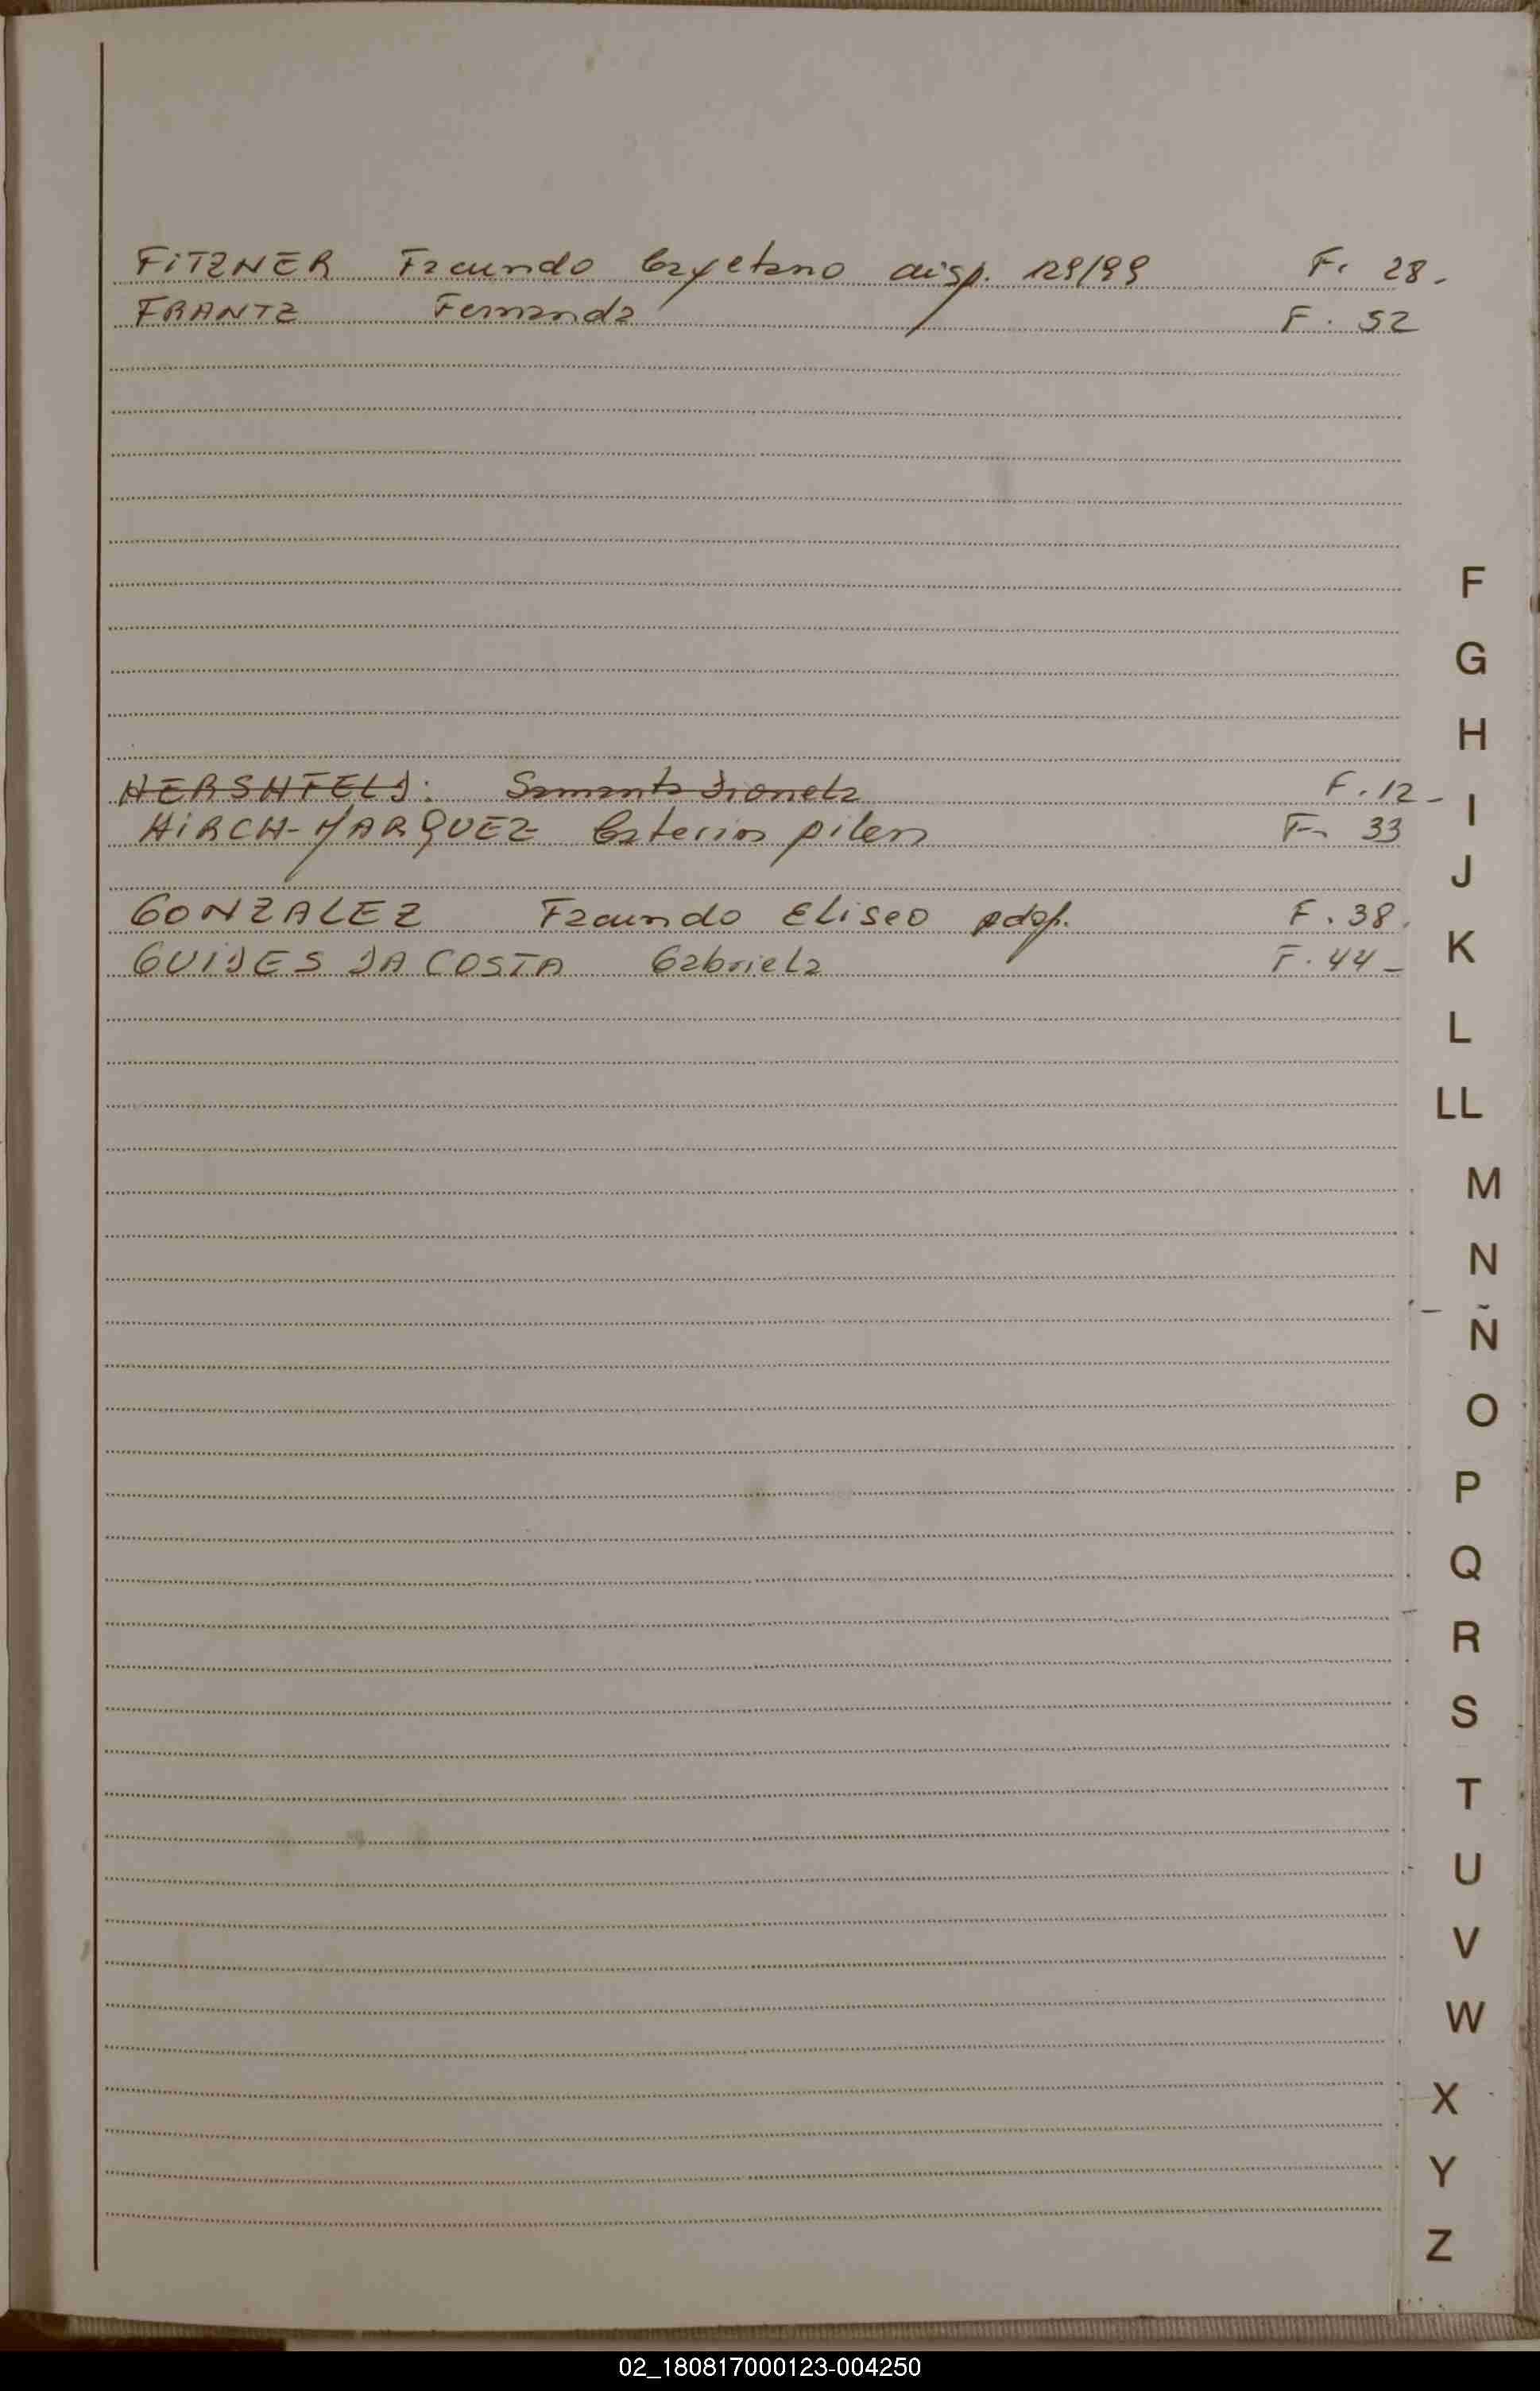 FITZNER Facundo Cayetano disp. 129/99 F. 28.
FRANTZ Fernanda F. 52
HERSHFELD: Samanta Dionela F. 12-
HIRCH-MARQUEZ Caterina pilen F- 33
GONZALEZ Facundo Eliseo adop. F. 38.
GUIDES DA COSTA Gabriela F. 44-
F
G
H
I
J
K
L
LL
M
N
Ñ
O
P
Q
R
S
T
U
V
W
X
Y
Z
02_180817000123-004250